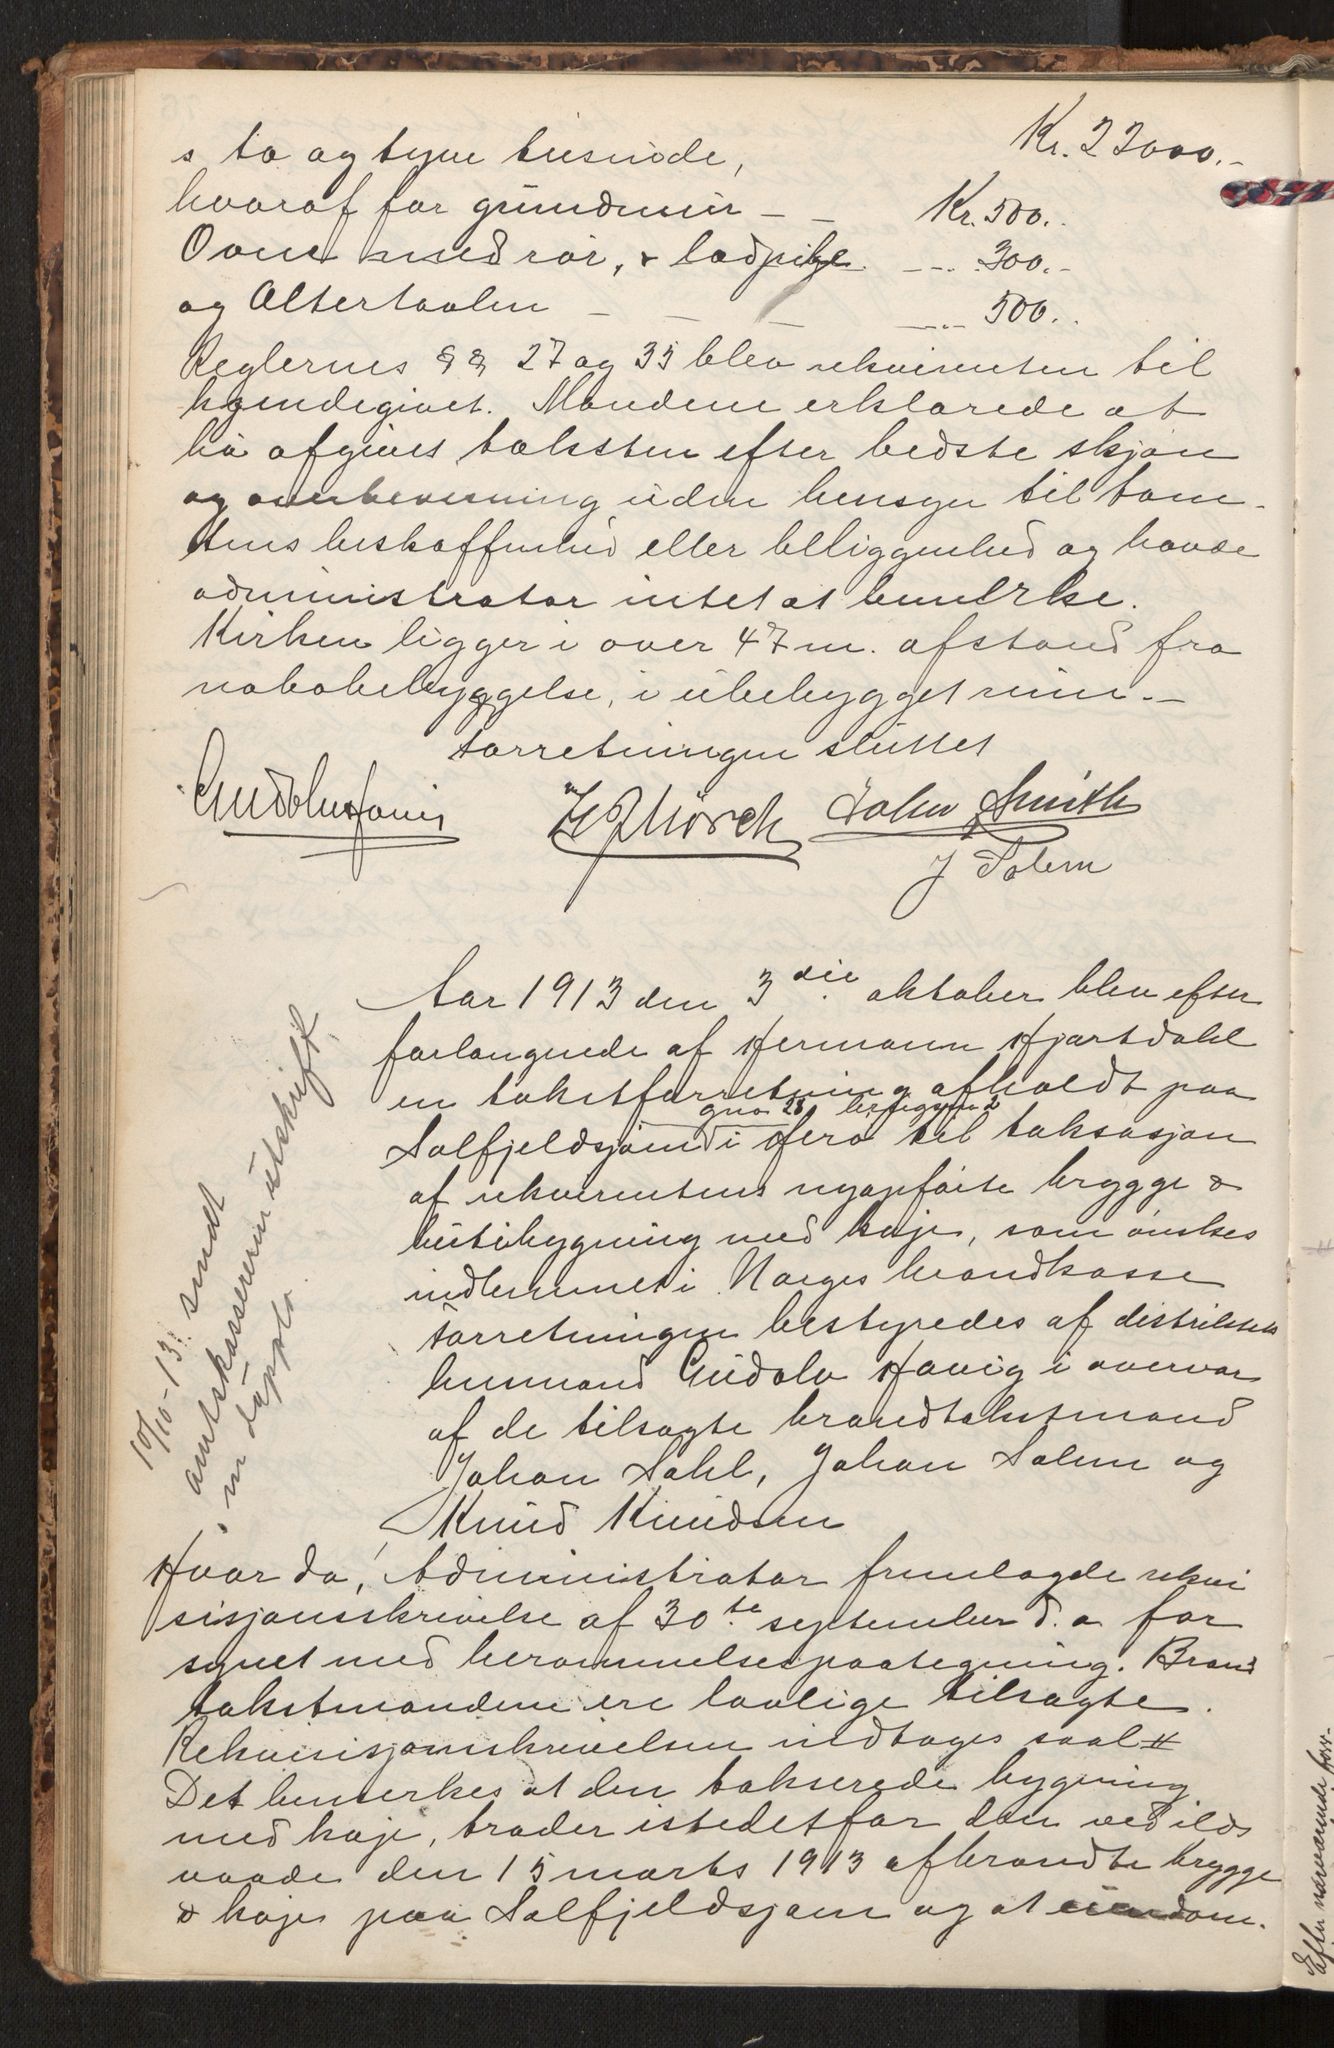 s to og tyve tusinde, Kr. 22000.-
hvoraf for grundmur - - Kr. 500..
Ovne med rør, & ladpibe - - 300.-
og Altertavlen - - - 500..
Reglernes §§ 27 og 35 blev rekvirenten til
kjendegivet. Mændene erklærede at
ha afgivet taksten efter bedste skjøn
og overbevisning uden hensyn til tom-
tens beskaffenhed eller beliggenhed og havde
administrator intet at bemerke.
Kirken ligger i over 47 m. afstand fra
nabobebyggelse, i ubebygget
Forretningen sluttet
Gudolv Havig John Smith
J Solem
Aar 1913 den 3die oktober blev efter
forlangende af Hermann Hjartdahl
en takstforretning afholdt paa
gno 28 brugsno 2
Solfjeldsjøen i Herø til taksasjon
af rekvirentens nyopførte brygge &
butikbygning med kaje, som ønskes
indlemmet i Norges brandkasse
Forretningen bestyredes af distrikts
lensmand Gudolv Havig i overvær
af de tilsagte brandtakstmænd
Johan Dahl, Johan Solem og
Knud Knudsen
10/10-13. sendt
amtskassereren utskrift
m dupplo.
Hvor da, Administrator fremlagde rekvi
sisjonsskrivelse af 30te september d. a for
synet med berammelsespaategning. Brand
takstmændene ere lovlige tilsagte.
Rekvisisjonsskrivelsen indtages saal #
Det bemerkes at den takserede bygning
med kaje, træder istedetfor den ved ilds
vaade den 15 marts 1913 afbrændte brygge
& kaje paa Solfjeldsjøen og at eiendom-
Efter nærværende forr-